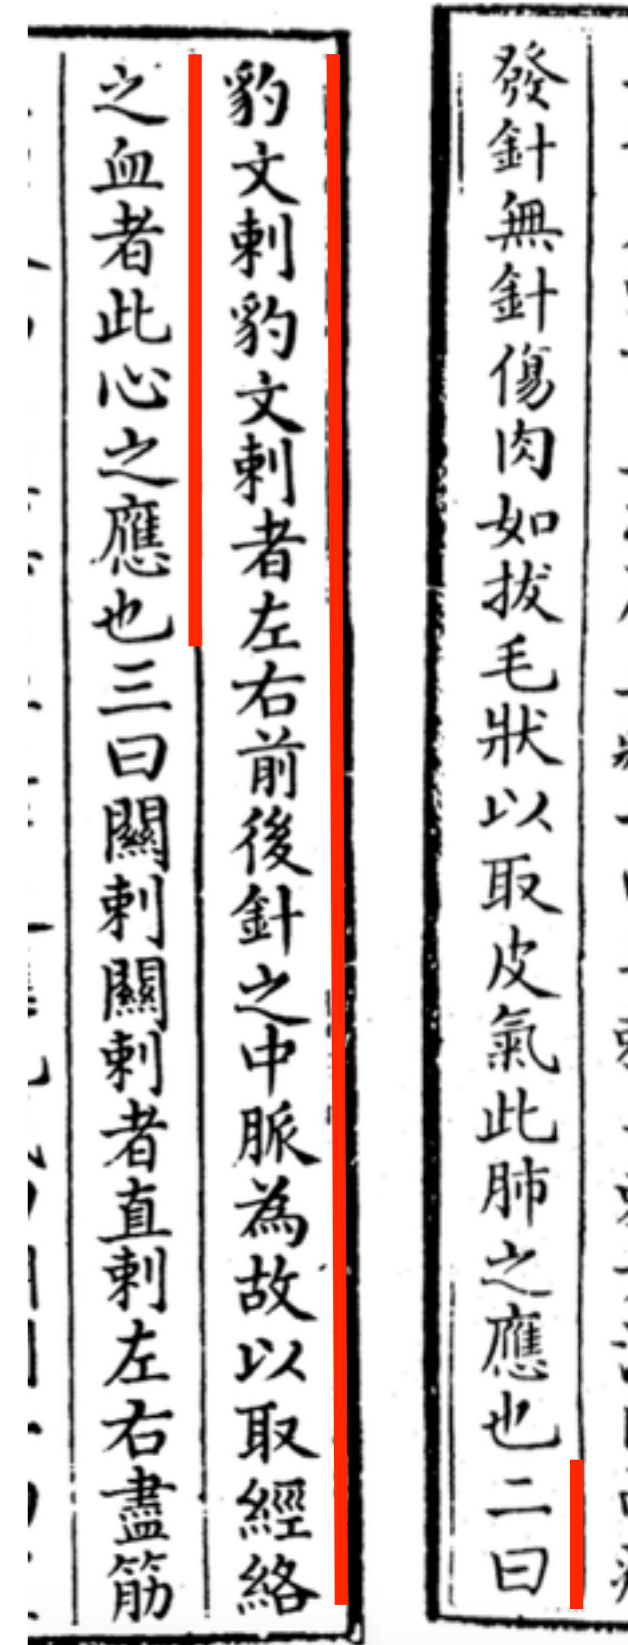 發針無針傷肉如拔毛狀以取皮氣此肺之應也二曰
豹文刺豹文刺者左右前後針之中脈為故以取經絡
之血者此心之應也三曰關刺關刺者直刺左右盡筋